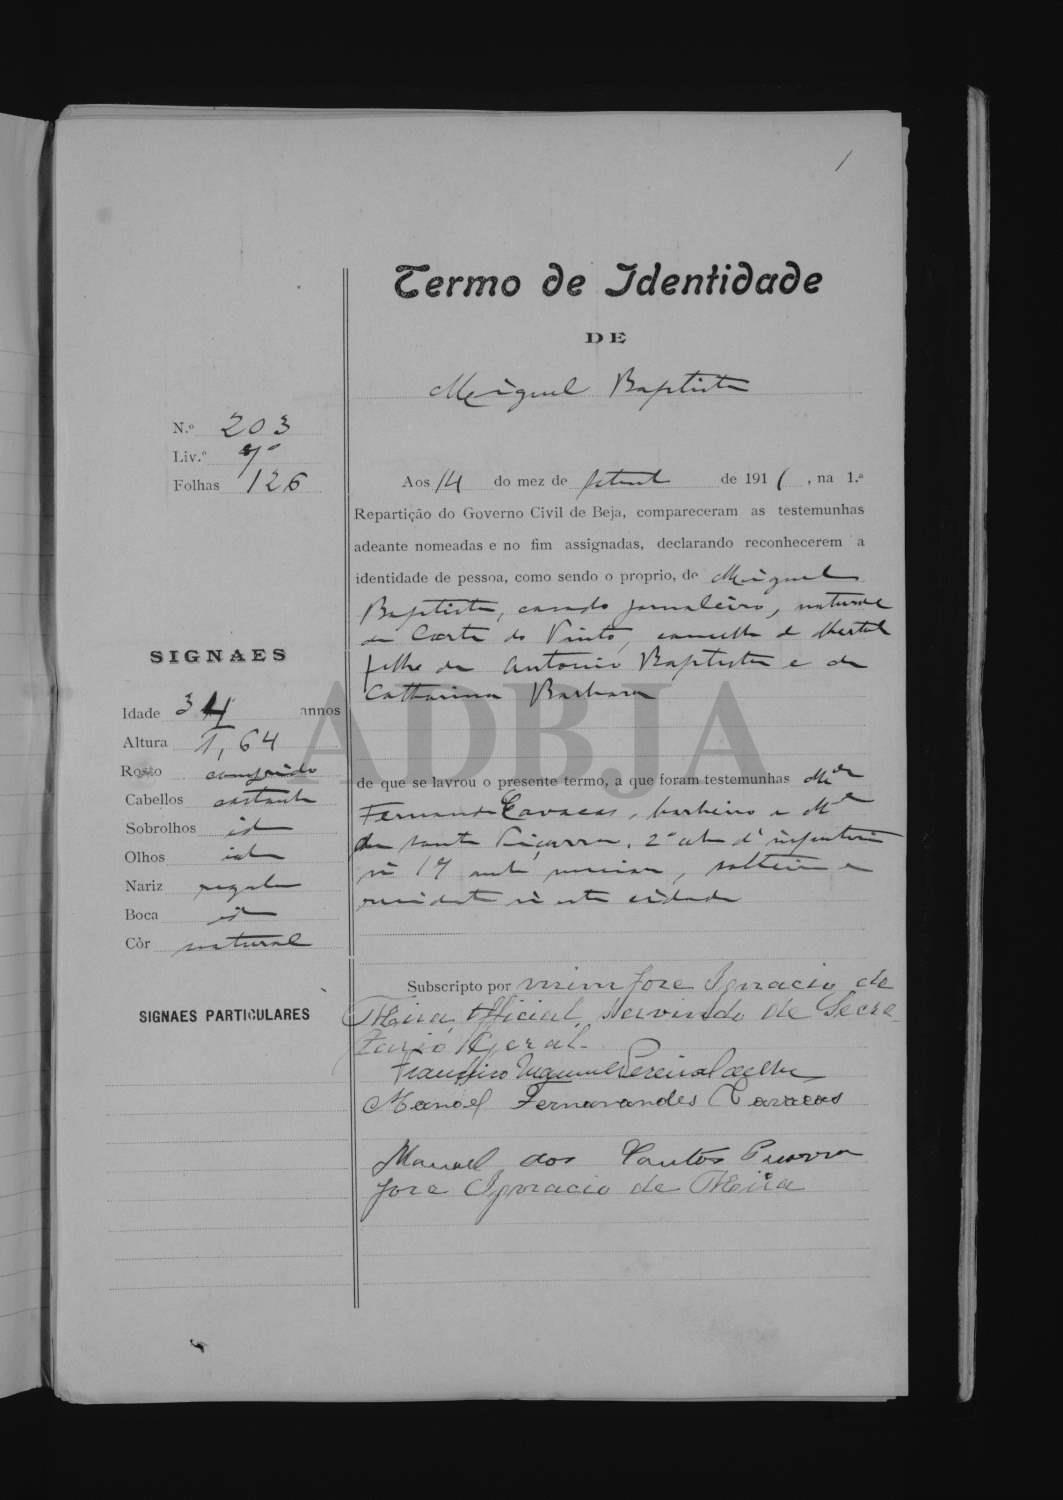 1
Termo de Identidade
DE
Miguel Baptista
N.º 203
Liv.º 7º
Folhas 126
Aos 14 do mez de de 1911, na 1.ª
Repartição do Governo Civil de Beja, compareceram as testemunhas
adeante nomeadas e no fim assignadas, declarando reconhecerem a
identidade de pessoa, como sendo o proprio, de Miguel
Baptista, casado jornaleiro, natural
da Corte do Pinto, concelho de Mertola
filho de Antonio Baptista e de
Catharina Barbara
de que se lavrou o presente termo, a que foram testemunhas M.el
Fernandes Cavacas, barbeiro e M.el
2º cabo d'infanteria
nº 17
residentes n'esta cidade
Subscripto por mim Jose Ignacio de
Meira, Official, servindo de Secre-
tario Geral.
Francisco Manuel Pereira Coelho
Manoel Fernanandes Cavacas
Manuel dos Santos
Jose Ignacio de Meira
SIGNAES
Idade 34 annos
Altura 1,64
Rosto comprido
Cabellos castanho
Sobrolhos id
Olhos id
Nariz regular
Boca id
Côr natural
SIGNAES PARTICULARES
ADBJA